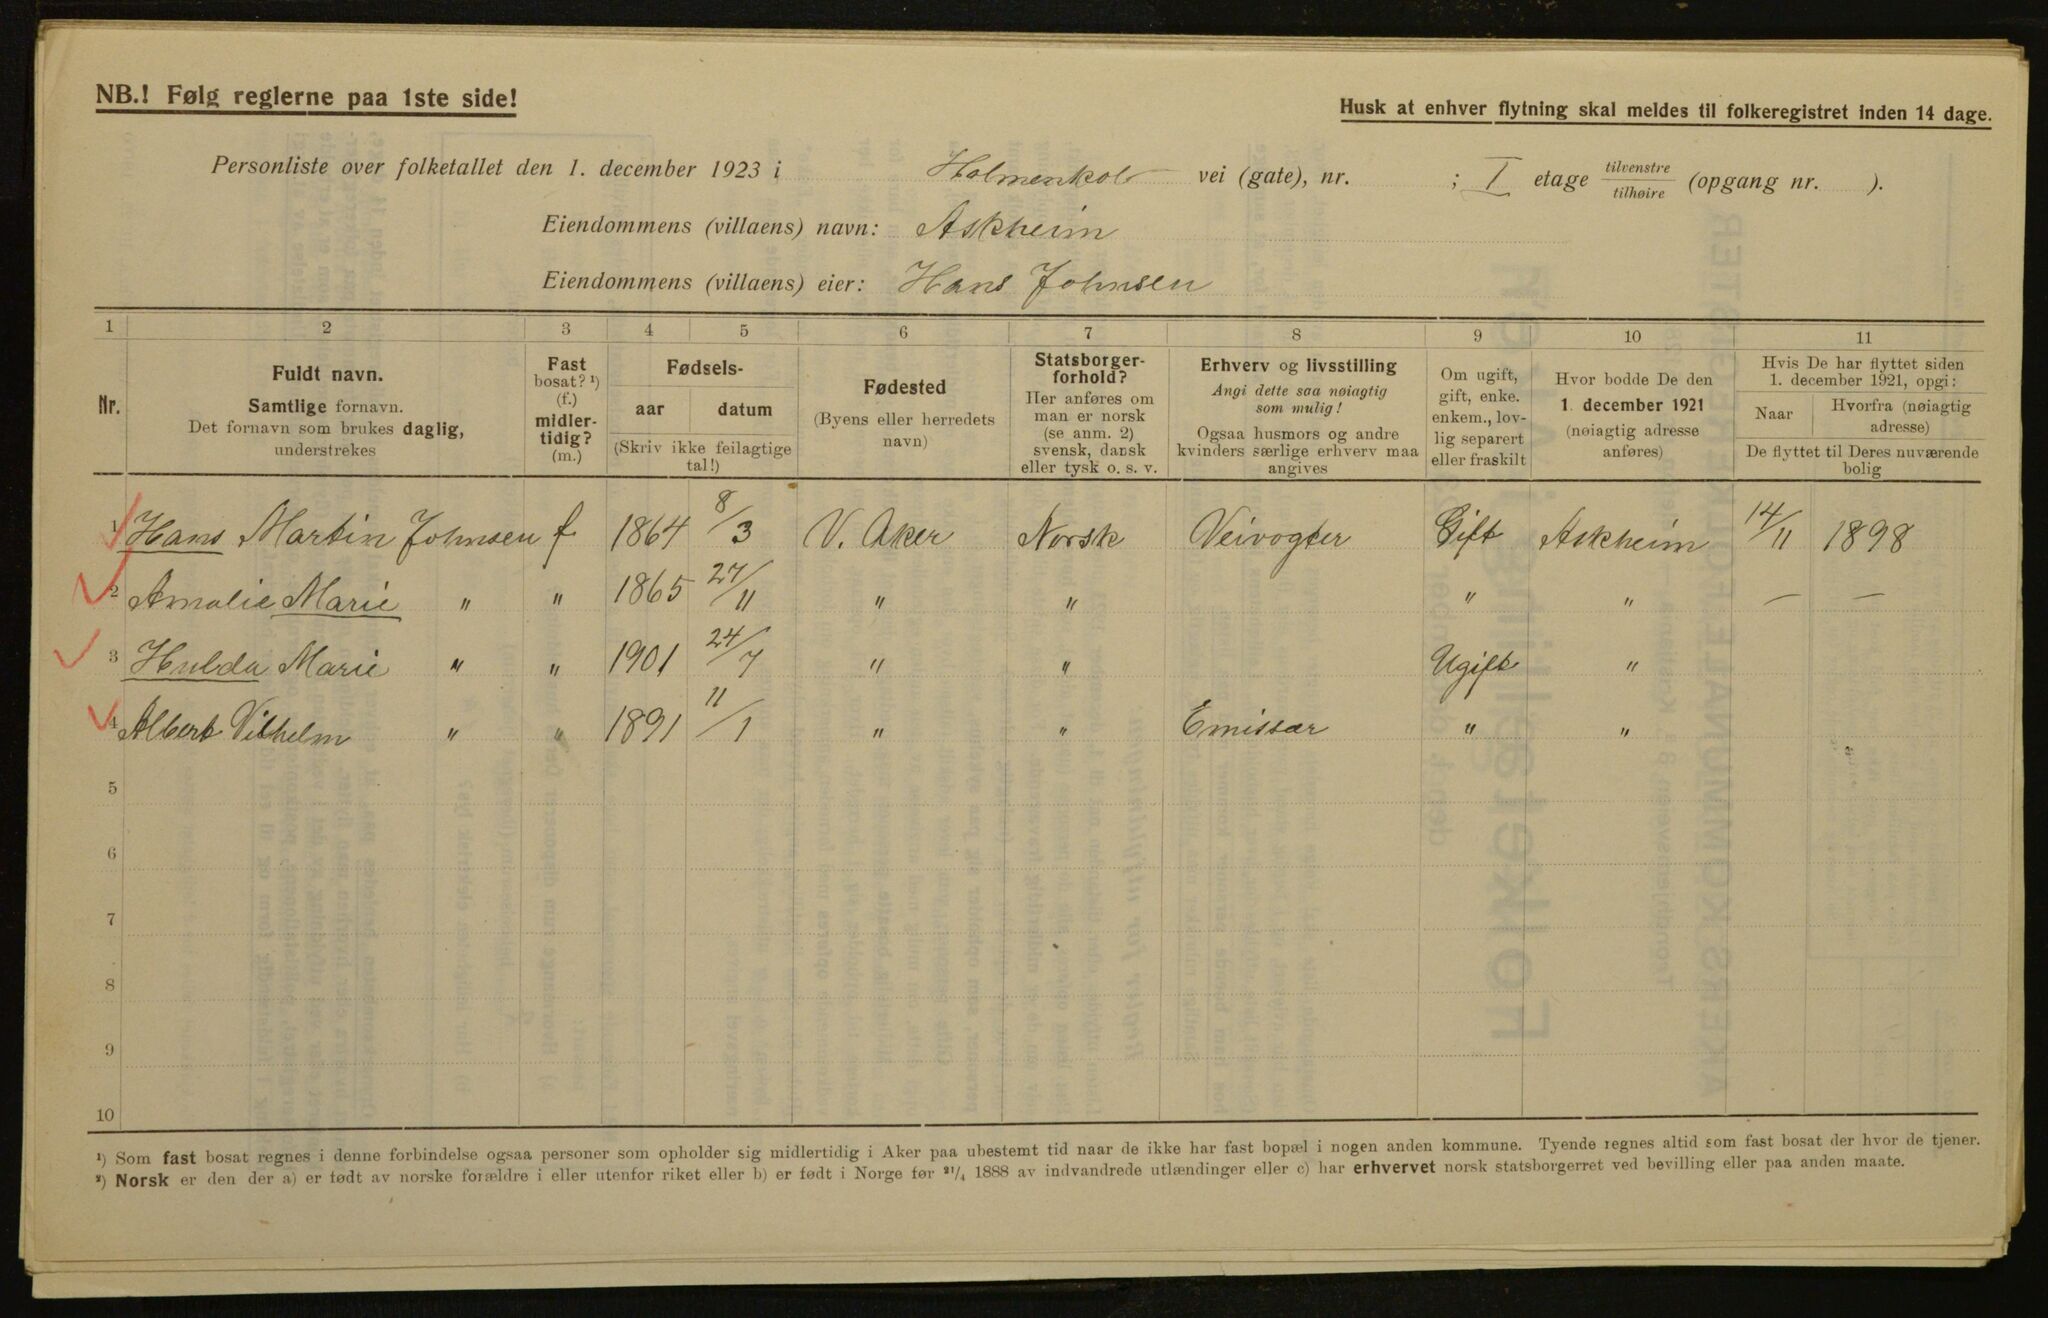 NB.! Følg reglerne paa 1ste side!
Husk at enhver flytning skal meldes til folkeregistret inden 14 dage.
Personliste over folketallet den 1. december 1923 i Holmenkol vei (gate), nr. ; I etage tilvenstre / tilhøire (opgang nr. ).
Eiendommens (villaens) navn: Askheim
Eiendommens (villaens) eier: Hans Johnsen
1 2 3 4 5 6 7 8 9 10 11
Nr.
Fuldt navn.
Samtlige fornavn.
Det fornavn som brukes daglig,
understrekes
Fast
bosat? ¹)
(f.)
midler-
tidig?
(m.)
Fødsels-
aar datum
(Skriv ikke feilagtige
tal!)
Fødested
(Byens eller herredets
navn)
Statsborger-
forhold?
Her anføres om
man er norsk
(se anm. 2)
svensk, dansk
eller tysk o. s. v.
Erhverv og livsstilling
Angi dette saa nøiagtig
som mulig!
Ogsaa husmors og andre
kvinders særlige erhverv maa
angives
Om ugift,
gift, enke.
enkem., lov-
lig separert
eller fraskilt
Hvor bodde De den
1. december 1921
(nøiagtig adresse
anføres)
Hvis De har flyttet siden
1. december 1921, opgi:
Naar Hvorfra (nøiagtig
adresse)
De flyttet til Deres nuværende
bolig
1 Hans Martin Johnsen f 1864 8/3 V. Aker Norsk Veivogter Gift Askheim 14/11 1898
2 Amalie Marie " " 1865 27/11 " " " " — —
3 Hulda Marie " " 1901 24/7 " " Ugift "
4 Albert Vilhelm " " 1891 11/1 " " Emissær " "
5
6
7
8
9
10
¹) Som fast bosat regnes i denne forbindelse ogsaa personer som opholder sig midlertidig i Aker paa ubestemt tid naar de ikke har fast bopæl i nogen anden kommune. Tyende regnes altid som fast bosat der hvor de tjener.
²) Norsk er den der a) er født av norske forældre i eller utenfor riket eller b) er født i Norge før ²¹/₄ 1888 av indvandrede utlændinger eller c) har erhvervet norsk statsborgerret ved bevilling eller paa anden maate.